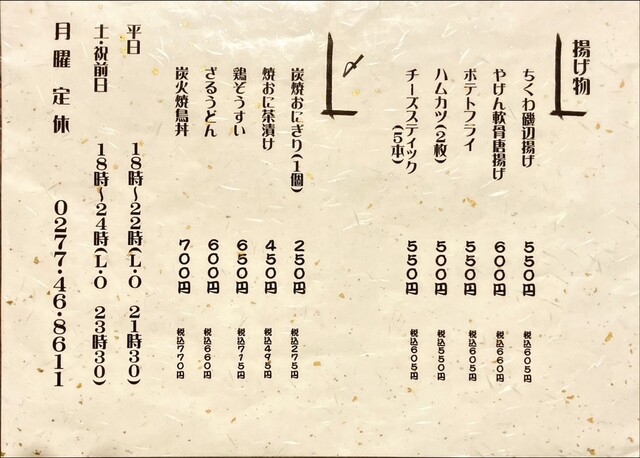 揚げ物
ちくわ磯辺揚げ 550円 税込605円
やげん軟骨唐揚げ 600円 税込660円
ポテトフライ 550円 税込605円
ハムカツ(2枚) 500円 税込550円
チーズスティック(5本) 550円 税込605円
〆
炭焼おにぎり(1個) 250円 税込275円
焼おに茶漬け 450円 税込495円
鶏ぞうすい 650円 税込715円
ざるうどん 600円 税込660円
炭火焼鳥丼 700円 税込770円
平日 18時~22時(L・O 21時30)
土・祝前日 18時~24時(L・O 23時30)
月曜定休 0277・46・8611